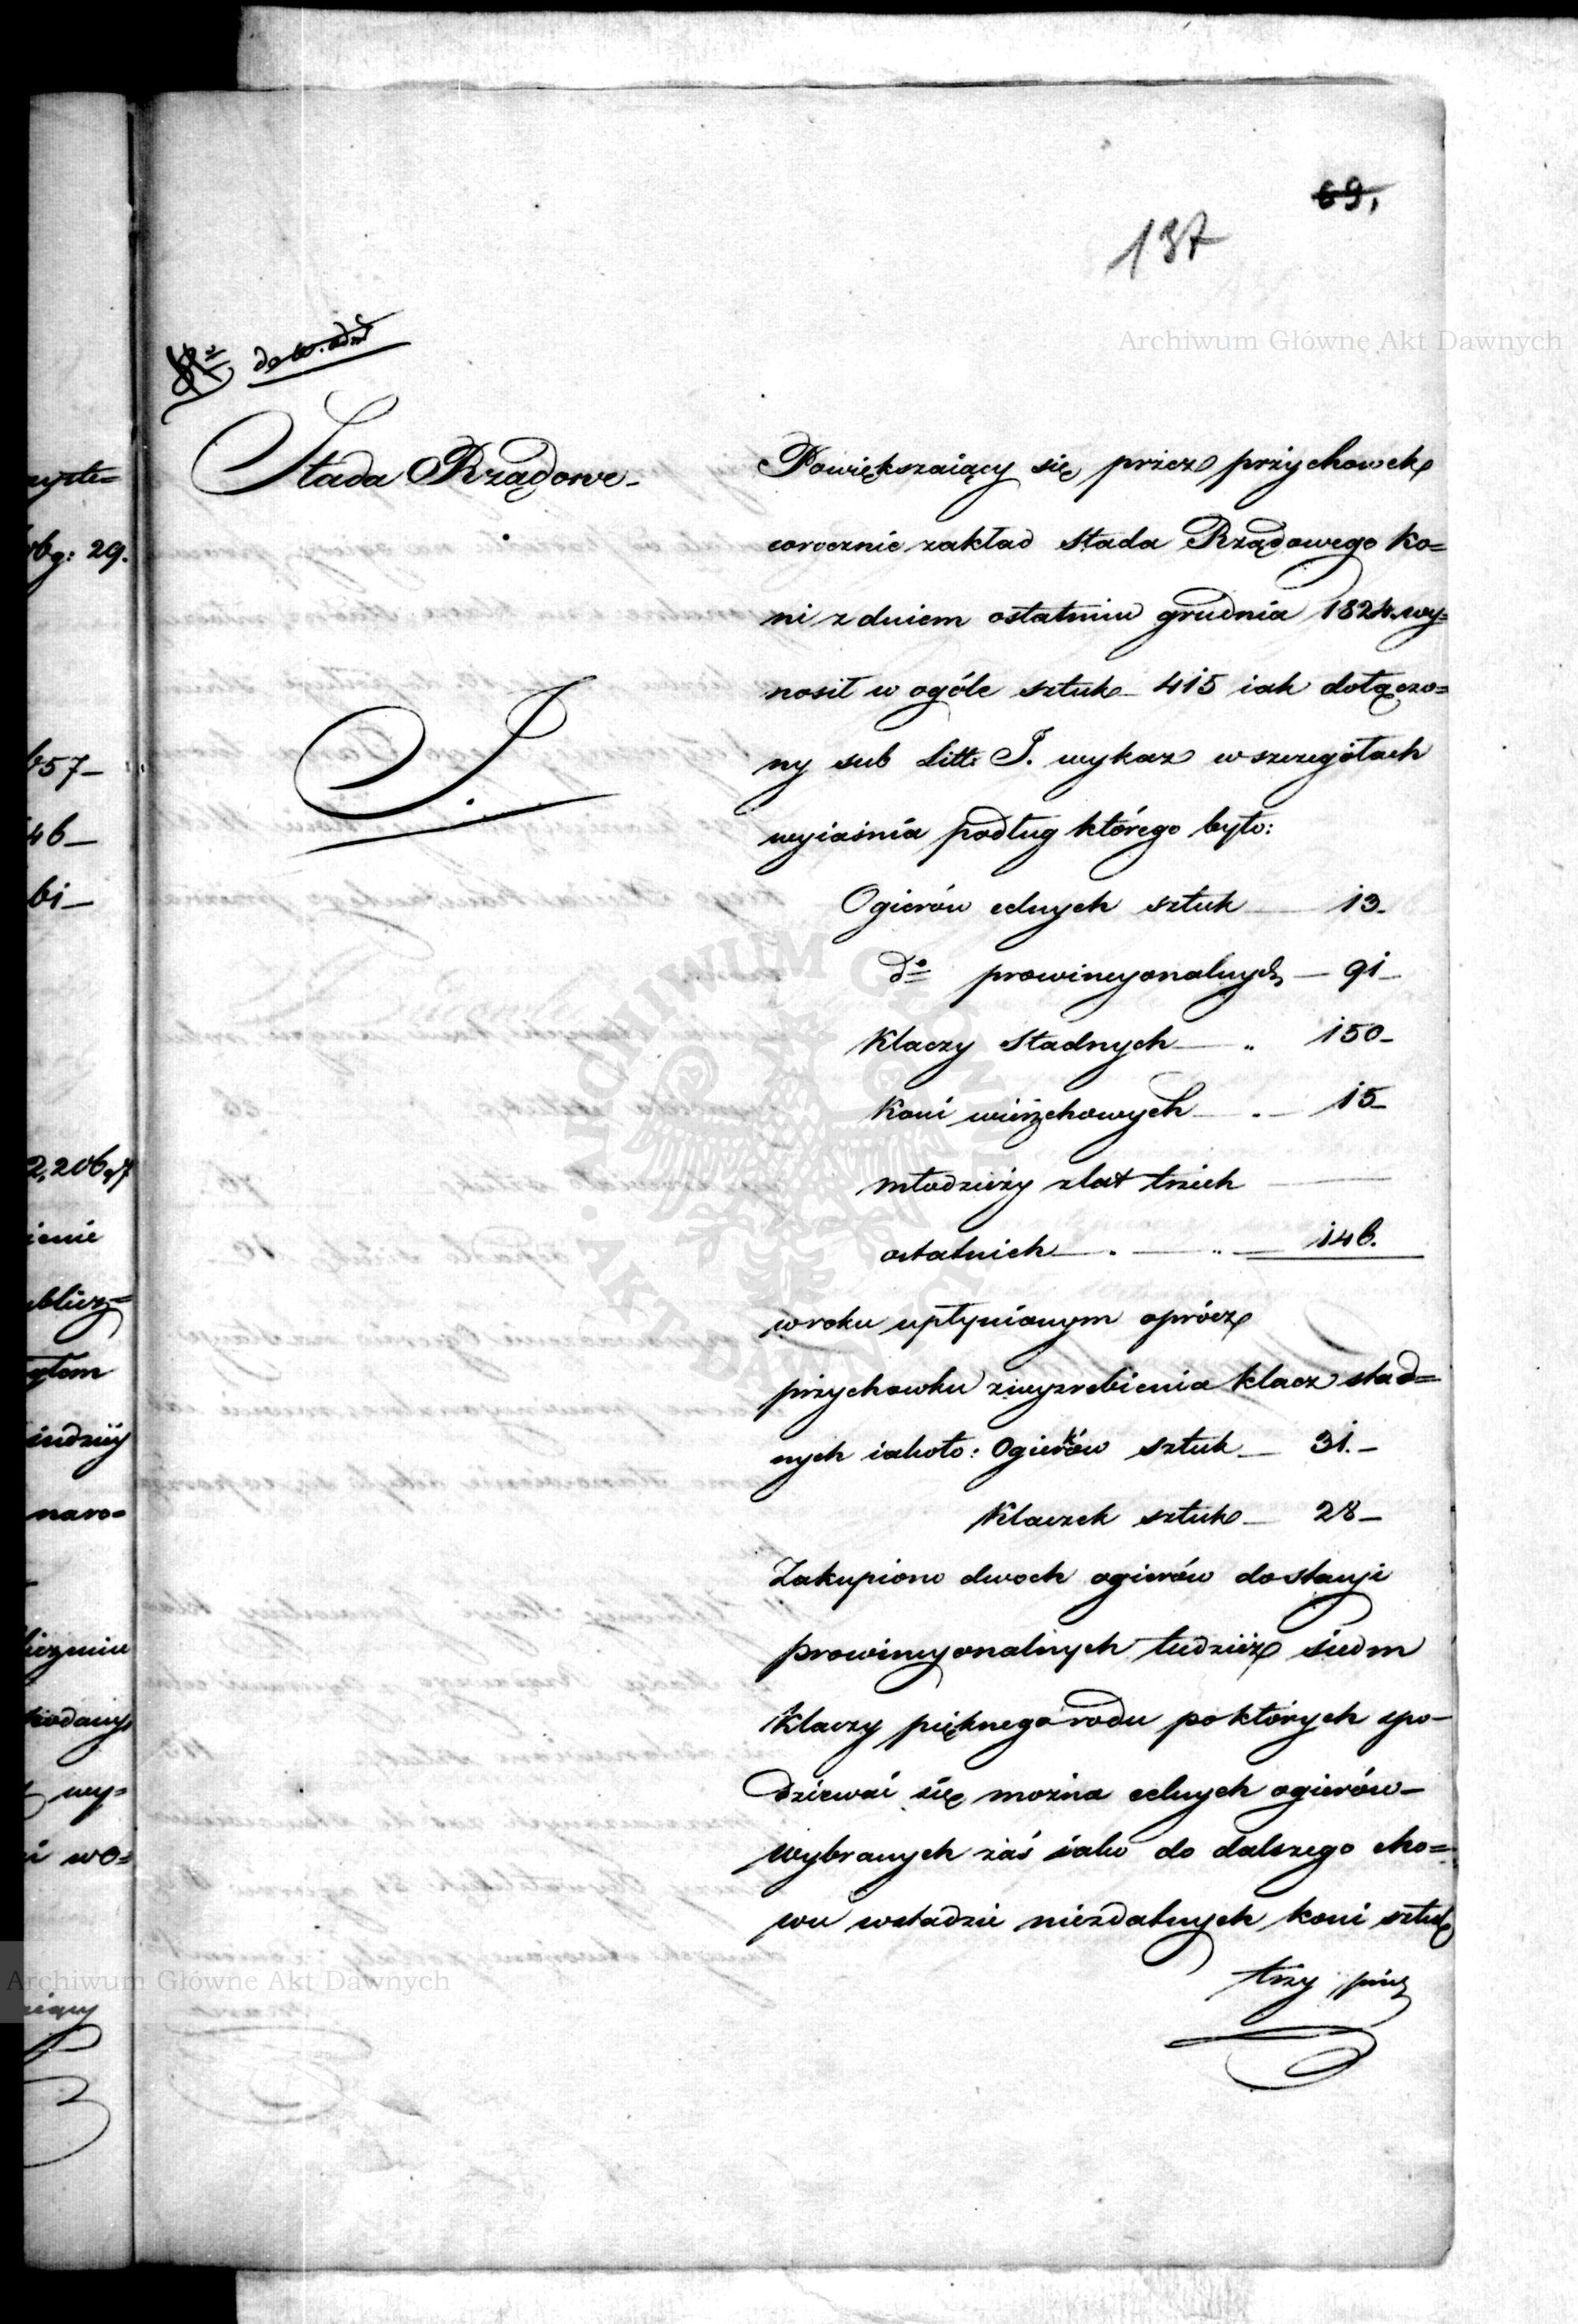 69.
137
Archiwum Główne Akt Dawnych
do W. Adm
Stada Rządowe
J.
Powiększaiący się przez przychowek
corocznie zakład Stada Rządowego ko=
ni z dniem ostatnim grudnia 1824. wy=
nosił w ogóle sztuk 415 iak dołączo=
ny sub Litt: J. wykaz w szczegółach
wyiaśnia podług którego było:
Ogierów celnych sztuk — 13.
do prowincyonalnych — 91 —
Klaczy Stadnych — „ 150 —
Koni wierzchowych — 15 —
młodzieży z lat trzech —
ostatnich — „ — 146.
w roku upłynionym oprócz
przychowku z wyzrebienia klacz stad=
nych iakoto: Ogierków sztuk — 31. —
Klaczek sztuk — 28 —
Zakupiono dwoch ogierów do stacyi
prowincyonalnych tudzież siedm
Klaczy pięknego rodu po których spo-
dziewać się można celnych ogierów —
wybranych zaś iako do dalszego cho=
wu w stadzie niezdatnych koni sztuk
trzy
wy=
wo=
naro=
29.
57 —
46 —
61 —
Archiwum Główne Akt Dawnych
ARCHIWUM GŁÓWNE AKT DAWNYCH